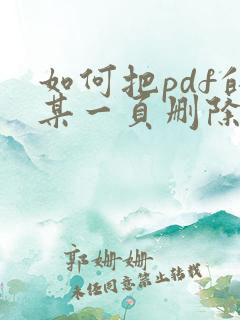 如何把pdf的
某一页删除
郭姗姗
未经同意禁止转载